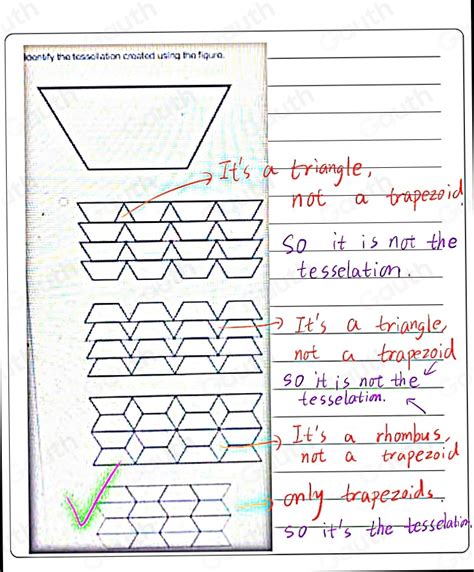 Identify the tessellation created using the figure.
It's a triangle,
not a trapezoid
so it is not the
tesselation.
It's a triangle,
not a trapezoid
so it is not the
tesselation.
It's a rhombus,
not a trapezoid
only trapezoids.
so it's the tesselation
Gauth